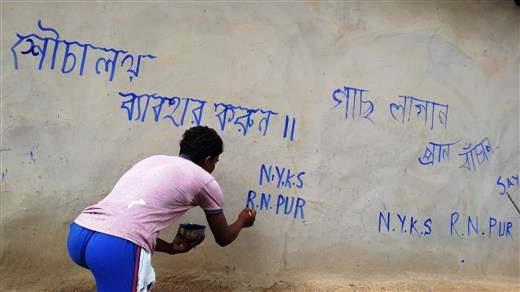 শৌচালয়
ব্যবহার করুন ॥
N.Y.K.S
R.N.PUR
গাছ লাগান
প্রান বাঁচান
N.Y.K.S R.N.PUR